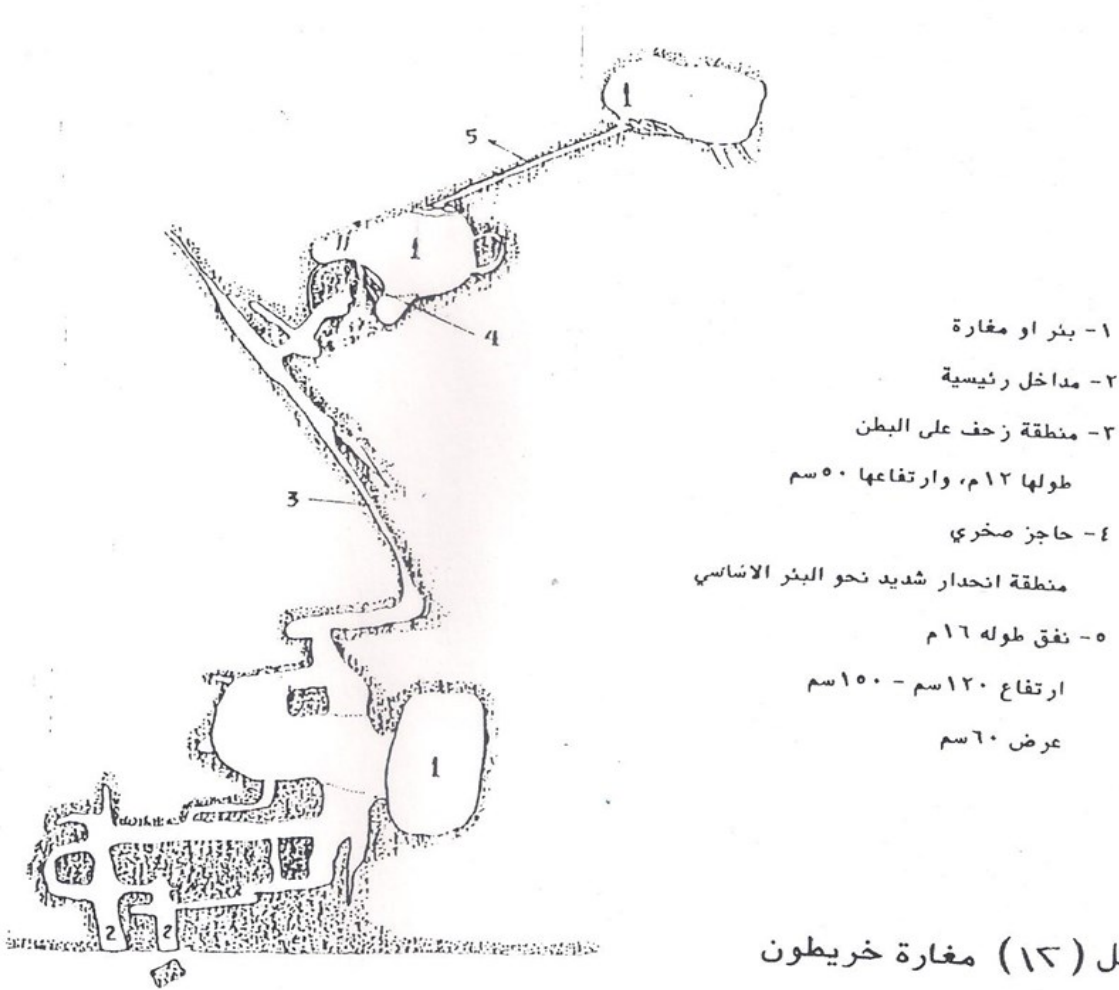 1
5
1
4
3
1
2
2
١- بئر او مغارة
٢- مداخل رئيسية
٣- منطقة زحف على البطن
طولها ١٢م، وارتفاعها ٥٠سم
٤- حاجز صخري
منطقة انحدار شديد نحو البئر الاساسي
٥- نفق طوله ١٦م
ارتفاع ١٢٠سم - ١٥٠سم
عرض ٦٠سم
ل (١٢) مغارة خريطون